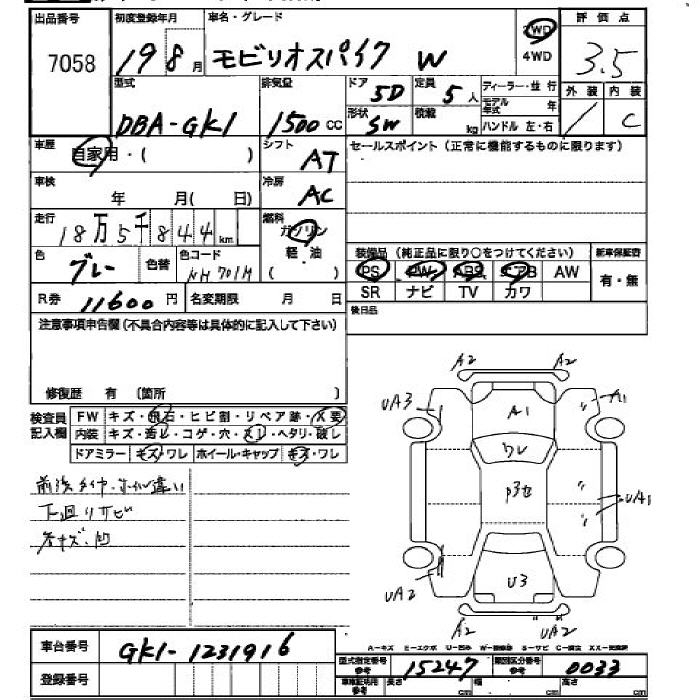 出品番号 7058
初度登録年月 19 8月
車名・グレード モビリオスパイク W
2WD
4WD
評価点 3.5
型式 DBA-GK1
排気量 1500cc
ドア 5D
定員 5人
形状 SW
積載 kg
ディーラー・並行
モデル年式 年
ハンドル 左・右
外装 内装 C
車歴 自家用・( )
シフト AT
セールスポイント(正常に機能するものに限ります)
車検 年 月( 日)
冷房 AC
走行 18万5千844km
燃料 ガソリン
軽・油
( )
色 グレー 色替 色コード NH701M
装備品(純正品に限り○をつけてください) 新車保証書
PS PW ABS エアB AW 有・無
SR ナビ TV カワ
R券 11600円 名変期限 月 日
後日品
注意事項申告欄(不具合内容等は具体的に記入して下さい)
修復歴 有 〔箇所 〕
検査員記入欄
FW キズ・飛石・ヒビ割・リペア跡・X要
内装 キズ・汚レ・コゲ・穴・スレ・ヘタリ・破レ
ドアミラー キズ・ワレ ホイール・キャップ キズ・ワレ
前後タイヤ・ホイル違い
下廻りサビ
各キズ・凹
A2 A2
UA3 A1 A1
ワレ
UA1
UA2 U3
A2 A2
車台番号 GK1-1231916
登録番号
型式指定番号 参考 15247 類別区分番号 参考 0033
長さ cm 幅 cm cm